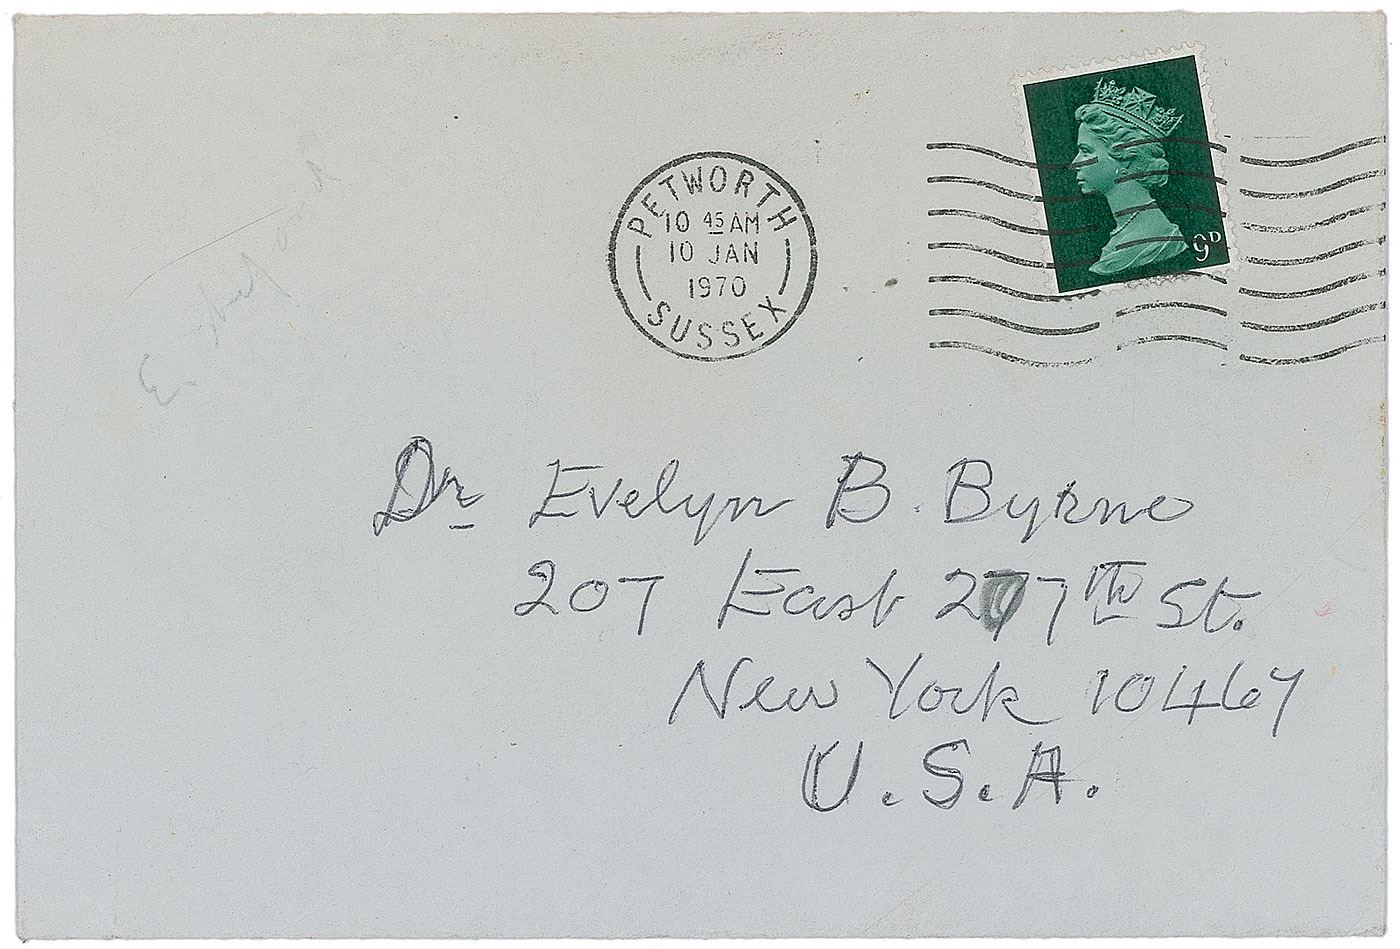 PETWORTH
10 45 AM
10 JAN
1970
SUSSEX
9D
Dr Evelyn B. Byrne
207 East 207th St.
New York 10467
U.S.A.